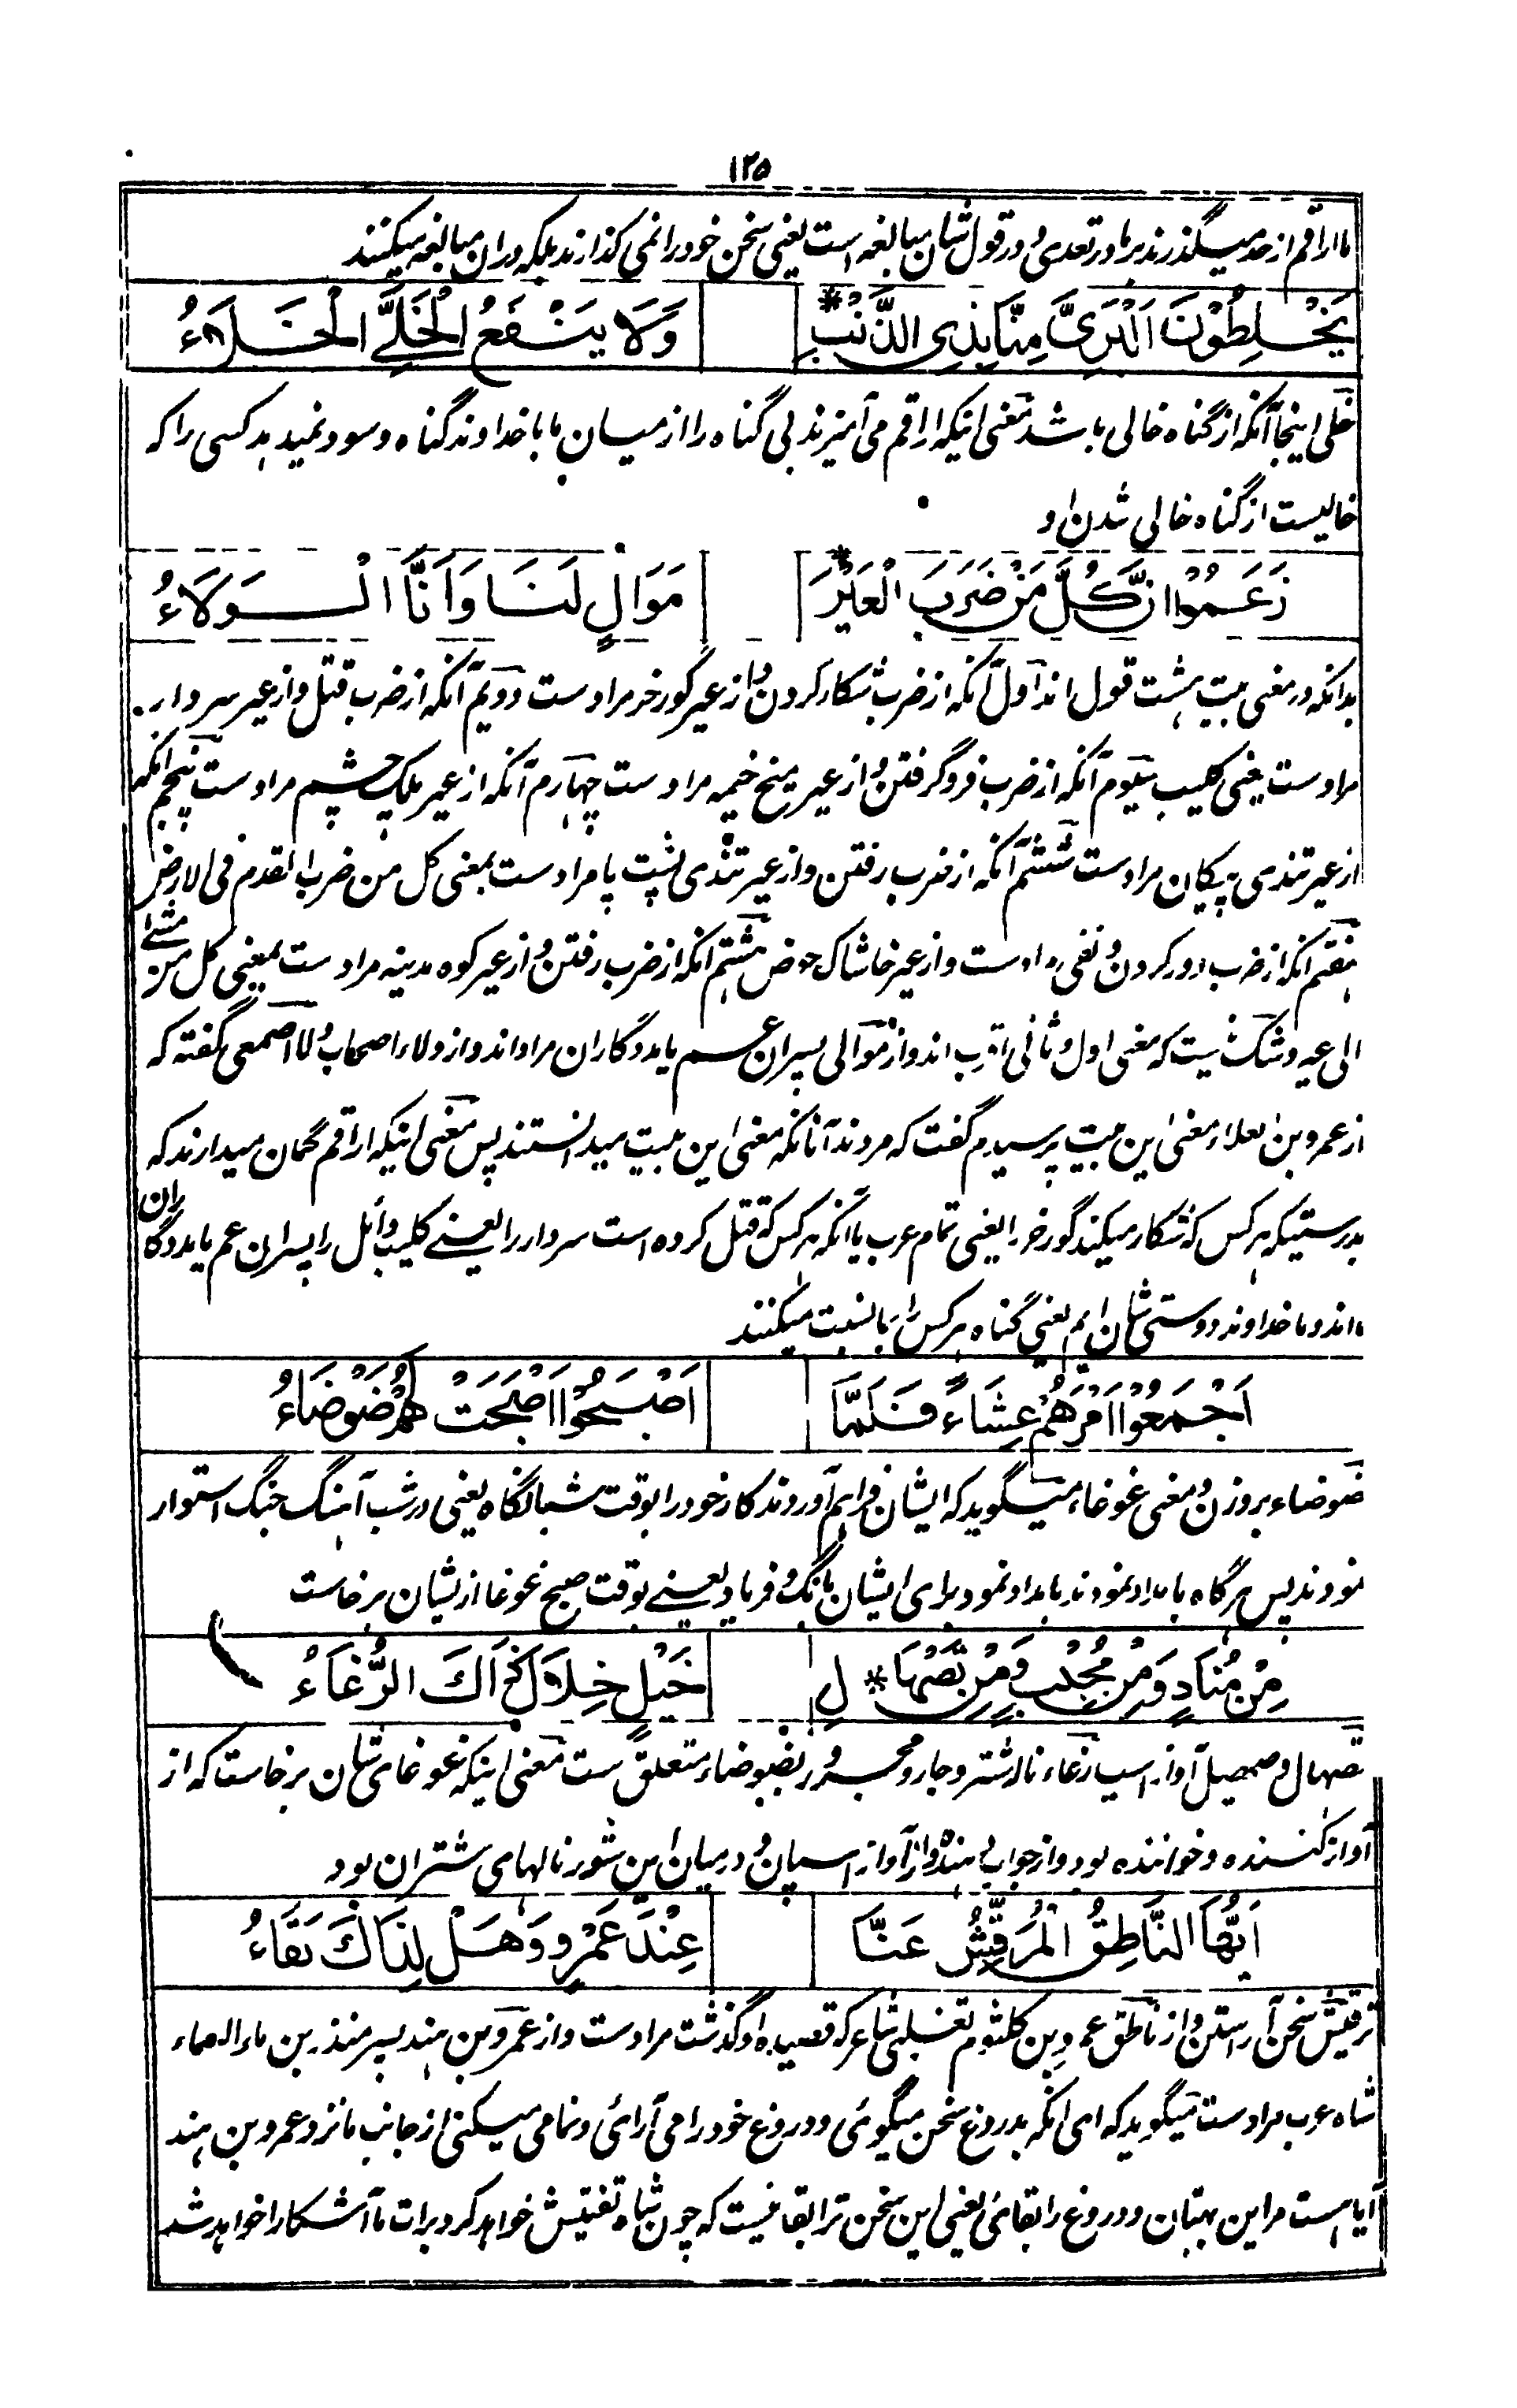 ۱۲۵
ما اراقم از حد میگذرند بر ما در تعدی و در قول شان مبالغه است یعنی سخن خود را نمی گذارند بلکه دران مبالغه میکنند
يَخْلِطُوْنَ الْبَرِیَّ مِنَّا بِذِی الذَّنْبِ * وَلَا يَنْفَعُ الْخَلِیَّ الْخَلَاءُ
خلی اینجا آنکه از گناه خالی باشد معنی اینکه اراقم می آمیزند بی گناه را از میان ما با خداوند گناه و سود نمیدهد کسی را که
خالیست از گناه خالی شدن او
زَعَمُوْا اَنَّ كُلَّ مَنْ ضَرَبَ الْعَيْرَ * مَوَالٍ لَنَا وَاَنَّا الْوَلَاءُ
بدانکه در معنی بیت هشت قول اند اول آنکه از ضرب شکار کردن و از عیر گورخر مرادست دویم آنکه از ضرب قتل و از عیر سردار
مرادست یعنی کلیب سیوم آنکه از ضرب فروگرفتن و از عیر میخ خیمه مرادست چهارم آنکه از عیر پلک چشم مرادست پنجم آنکه
از عیر تندی پیکان مرادست ششم آنکه از ضرب رفتن و از عیر تندی پشت پا مرادست بمعنی کل من ضرب القدم فی الارض
هفتم آنکه از ضرب دور کردن و نفی مرادست و از عیر خاشاک حوض هشتم آنکه از ضرب رفتن و از عیر کوه مدینه مرادست بمعنی کل من مشی
الی عیر و شک نیست که معنی اول و ثانی اقرب اند و از موالی پسران عم یا مددگاران مراد اند و از ولاء اصحاب ولا اصمعی گفته که
از عمرو بن العلاء معنی این بیت پرسیدم گفت که مردند آنانکه معنی این بیت میدانستند پس معنی اینکه اراقم گمان میدارند که
بدرستیکه هر کس که شکار میکند گورخر را یعنی تمام عرب یا آنکه هر کس که قتل کرده است سردار را یعنی کلیب وائل را پسران عم یا مددگاران
ما اند و ما خداوند دوستی شان ایم یعنی گناه هر کس را بما نسبت میکنند
اَجْمَعُوْا اَمْرَهُمْ عِشَاءً فَلَمَّا اَصْبَحُوْا اَصْبَحَتْ لَهُمْ ضَوْضَاءُ
ضوضاء بروزن و معنی غوغاء میگوید که ایشان فراهم آوردند کار خود را بوقت شبانگاه یعنی در شب آهنگ جنگ استوار
نمودند پس هرگاه بامداد نمودند بامداد نمود برای ایشان بانگ و فریاد یعنی بوقت صبح غوغا ازیشان برخاست
مِنْ مُنَادٍ وَمِنْ مُجِيْبٍ وَمِنْ تَصْهَا * لِ خَيْلٍ خِلَالَ ذَاكَ الرُّغَاءُ
تصهال و صهیل آواز اسپ رغاء ناله شتر و جار و مجرور بضوضاء متعلق ست معنی اینکه غوغای شان برخاست که از
آواز کننده و خواننده بود و از جواب دهنده و از آواز اسپان و درمیان این شور نالهای شتران بود
اَيُّهَا النَّاطِقُ الْمُرَقِّشُ عَنَّا عِنْدَ عَمْرٍو وَهَلْ لِذَاكَ بَقَاءُ
ترقیش سخن آراستن و از ناطق عمرو بن کلثوم تغلبی شاعر که قصیده او گذشت مرادست و از عمرو بن هند پسر منذر بن ماء السماء
شاه عرب مرادست میگوید که ای آنکه بدروغ سخن میگوئی و دروغ خود را می آرائی و نمامی میکنی از جانب ما نزد عمرو بن هند
آیا هست مر این بهتان و دروغ را بقائی یعنی این سخن ترا بقا نیست که چون شاه تفتیش خواهد کرد برات ما آشکارا خواهد شد